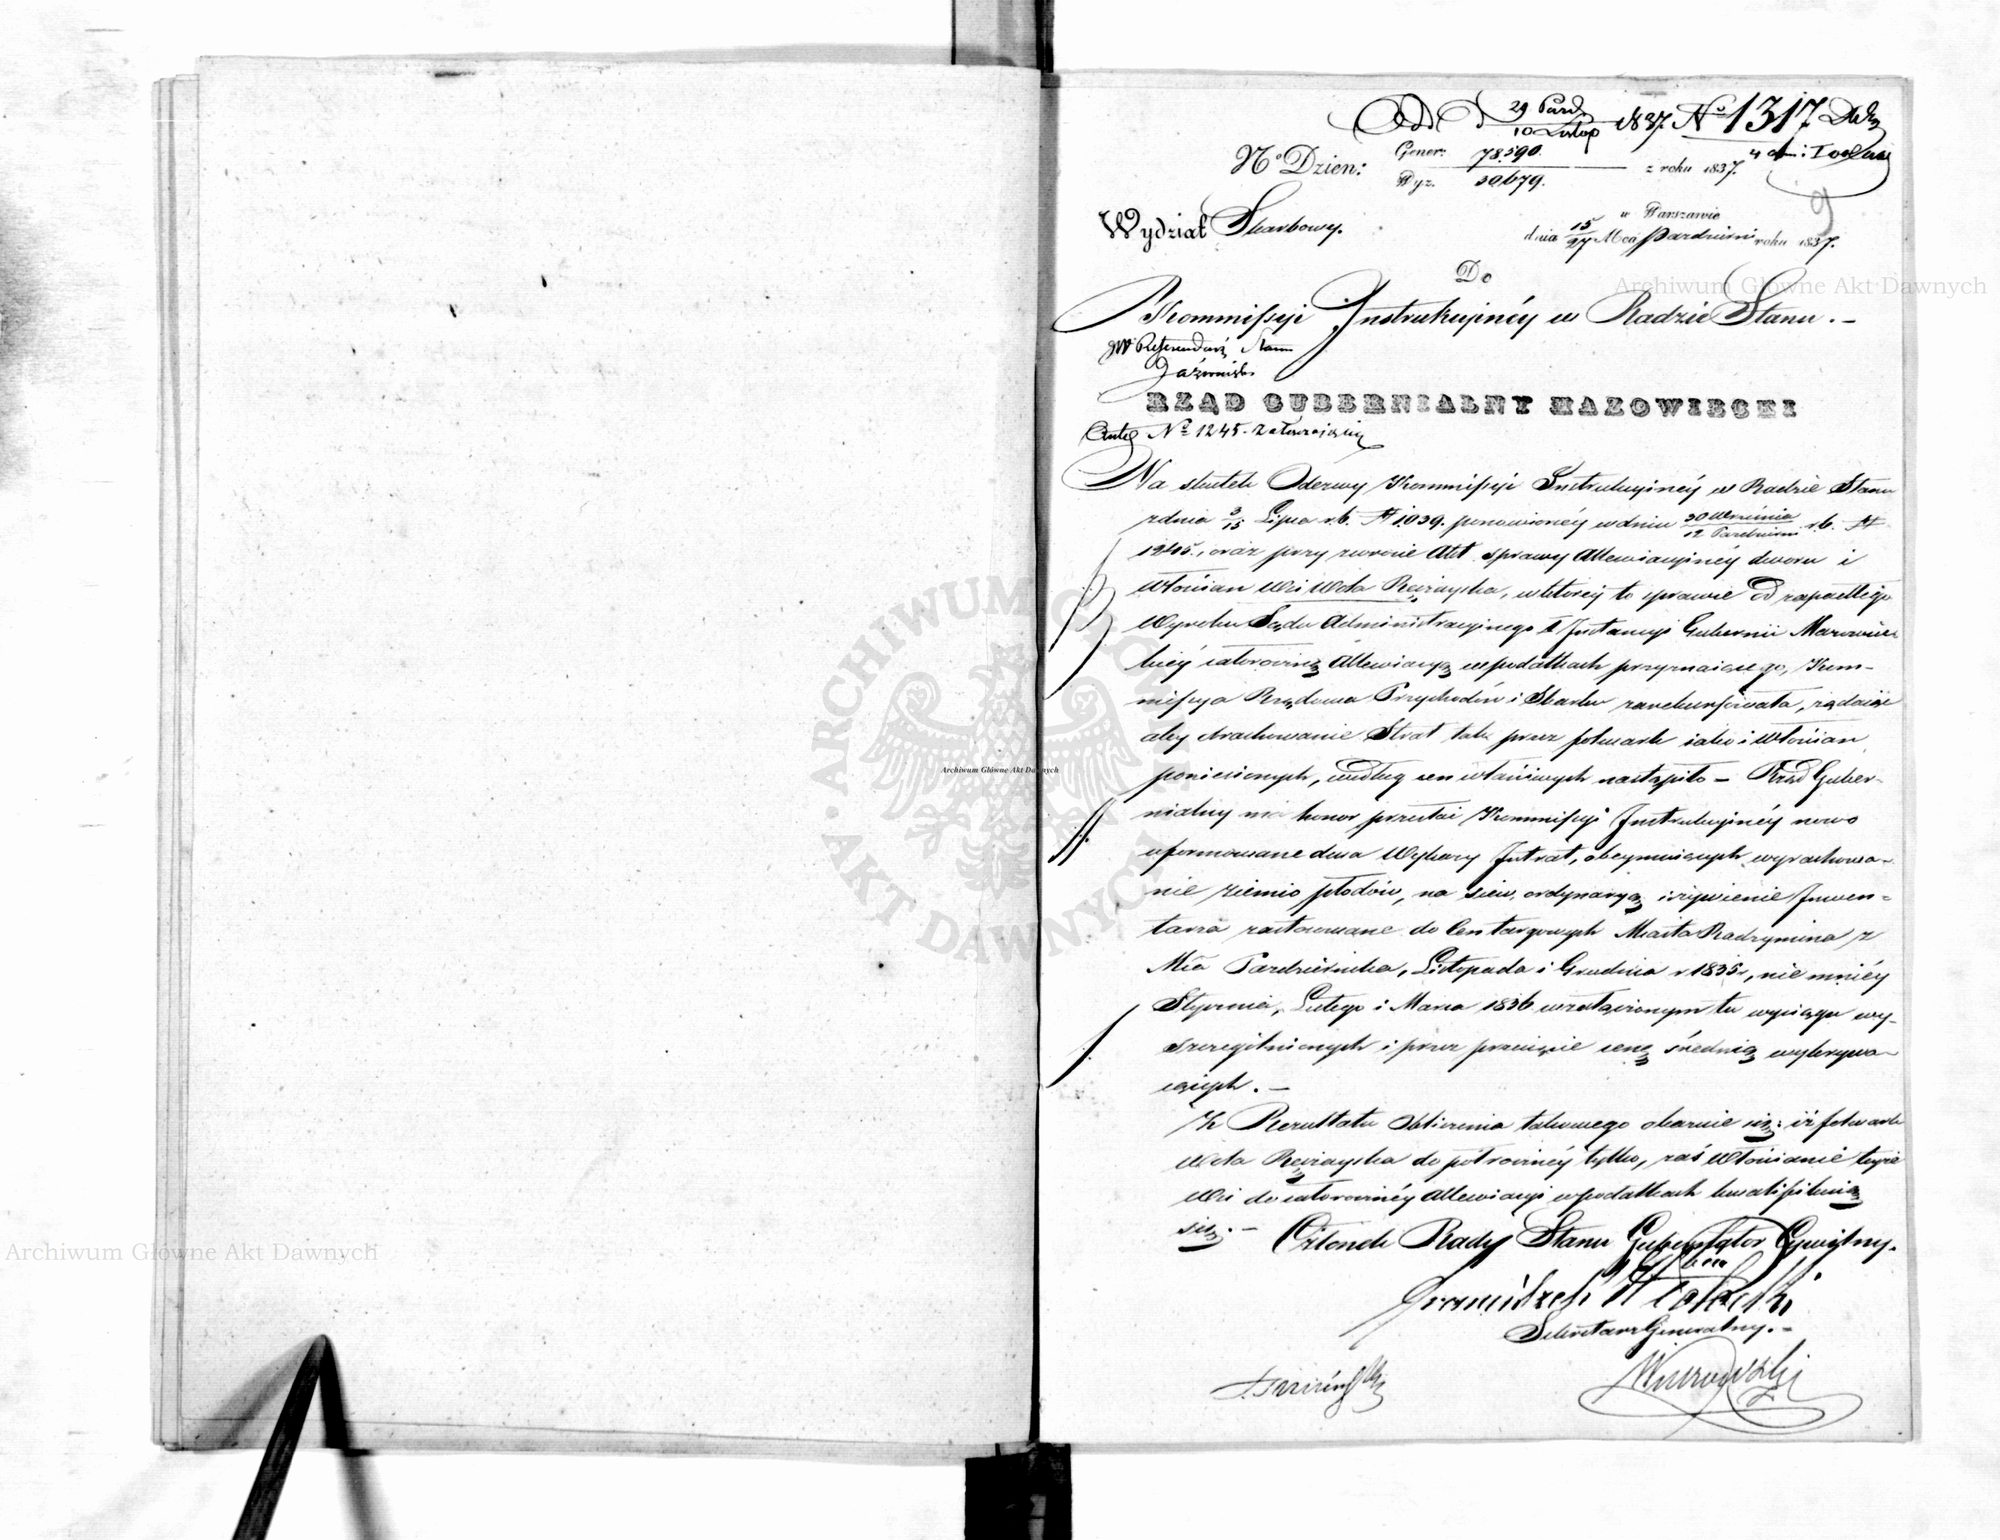 Odd d 29 Paźd 1837 Nº 1317
10 Listop
Nº Dzien: Gener: 78,590. z roku 1837.
Wyz. 30679.
9
Wydział Skarbowy.
w Warszawie
dnia 15/27 Mca Październi roku 1837.
Do
Kommissyi Instrukcyinéy w Radzie Stanu. –
JW Referendarz Stanu
RZĄD GUBERNIALNY MAZOWIECKI
Nº 1245.
Na skutek Odezwy Kommissyi Instrukcyinéy w Radzie Stanu
z dnia 3/15 Lipca r.b. N 1039. ponowionéy w dniu 30 Września / 12 Październi r.b. N
1245., oraz przy zwrocie Akt sprawy Allewiacyinéy dworu i
Włościan Wsi Wola Ręczayska, w którey to sprawie od zapadłego
Wyroku Sądu Administracyinego I Instancyi Gubernii Mazowiec-
kiéy całoroczną Allewiacyą w podatkach przyznaiącego, Kom-
missya Rządowa Przychodów i Skarbu zarekurssowała, żądaiąc
aby obrachowanie Strat tak przez folwark iako i Włościan
poniesionych, według cen właściwych nastąpiło – Rząd Guber-
nialny ma honor przesłać Kommissyi Instrukcyinéy nowo
uformowane dwa Wykazy Intrat, obeymuiących wyrachowa-
nie ziemio płodów, na siew, ordynaryą i żywienie Inwen-
tarza zastosowane do Cen targowych Miasta Radzymina z
Mca Października, Listopada i Grudnia r 1835, nie mniéy
Stycznia, Lutego i Marca 1836 w załączonym tu wyciągu wy-
szczególnionych i przez przecięcie cenę średnią wykrywa-
iących. –
Z Rezultatu obliczenia takowego okazuie się: iż folwark
Wola Ręczayska do półroczniéy tylko, zaś Włościanie teyże
Wsi do całorocznéy Allewiacyi w podatkach kwalifikuią
się. –
Członek Rady Stanu Gubernator Cywilny.
Sekretarz Generalny. –
Archiwum Główne Akt Dawnych
Archiwum Główne Akt Dawnych
Archiwum Główne Akt Dawnych
ARCHIWUM GŁÓWNE AKT DAWNYCH